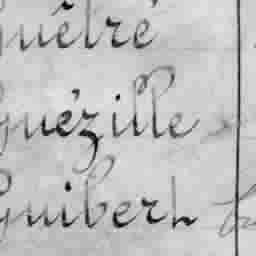 Guêtré
Guézille
Guibert